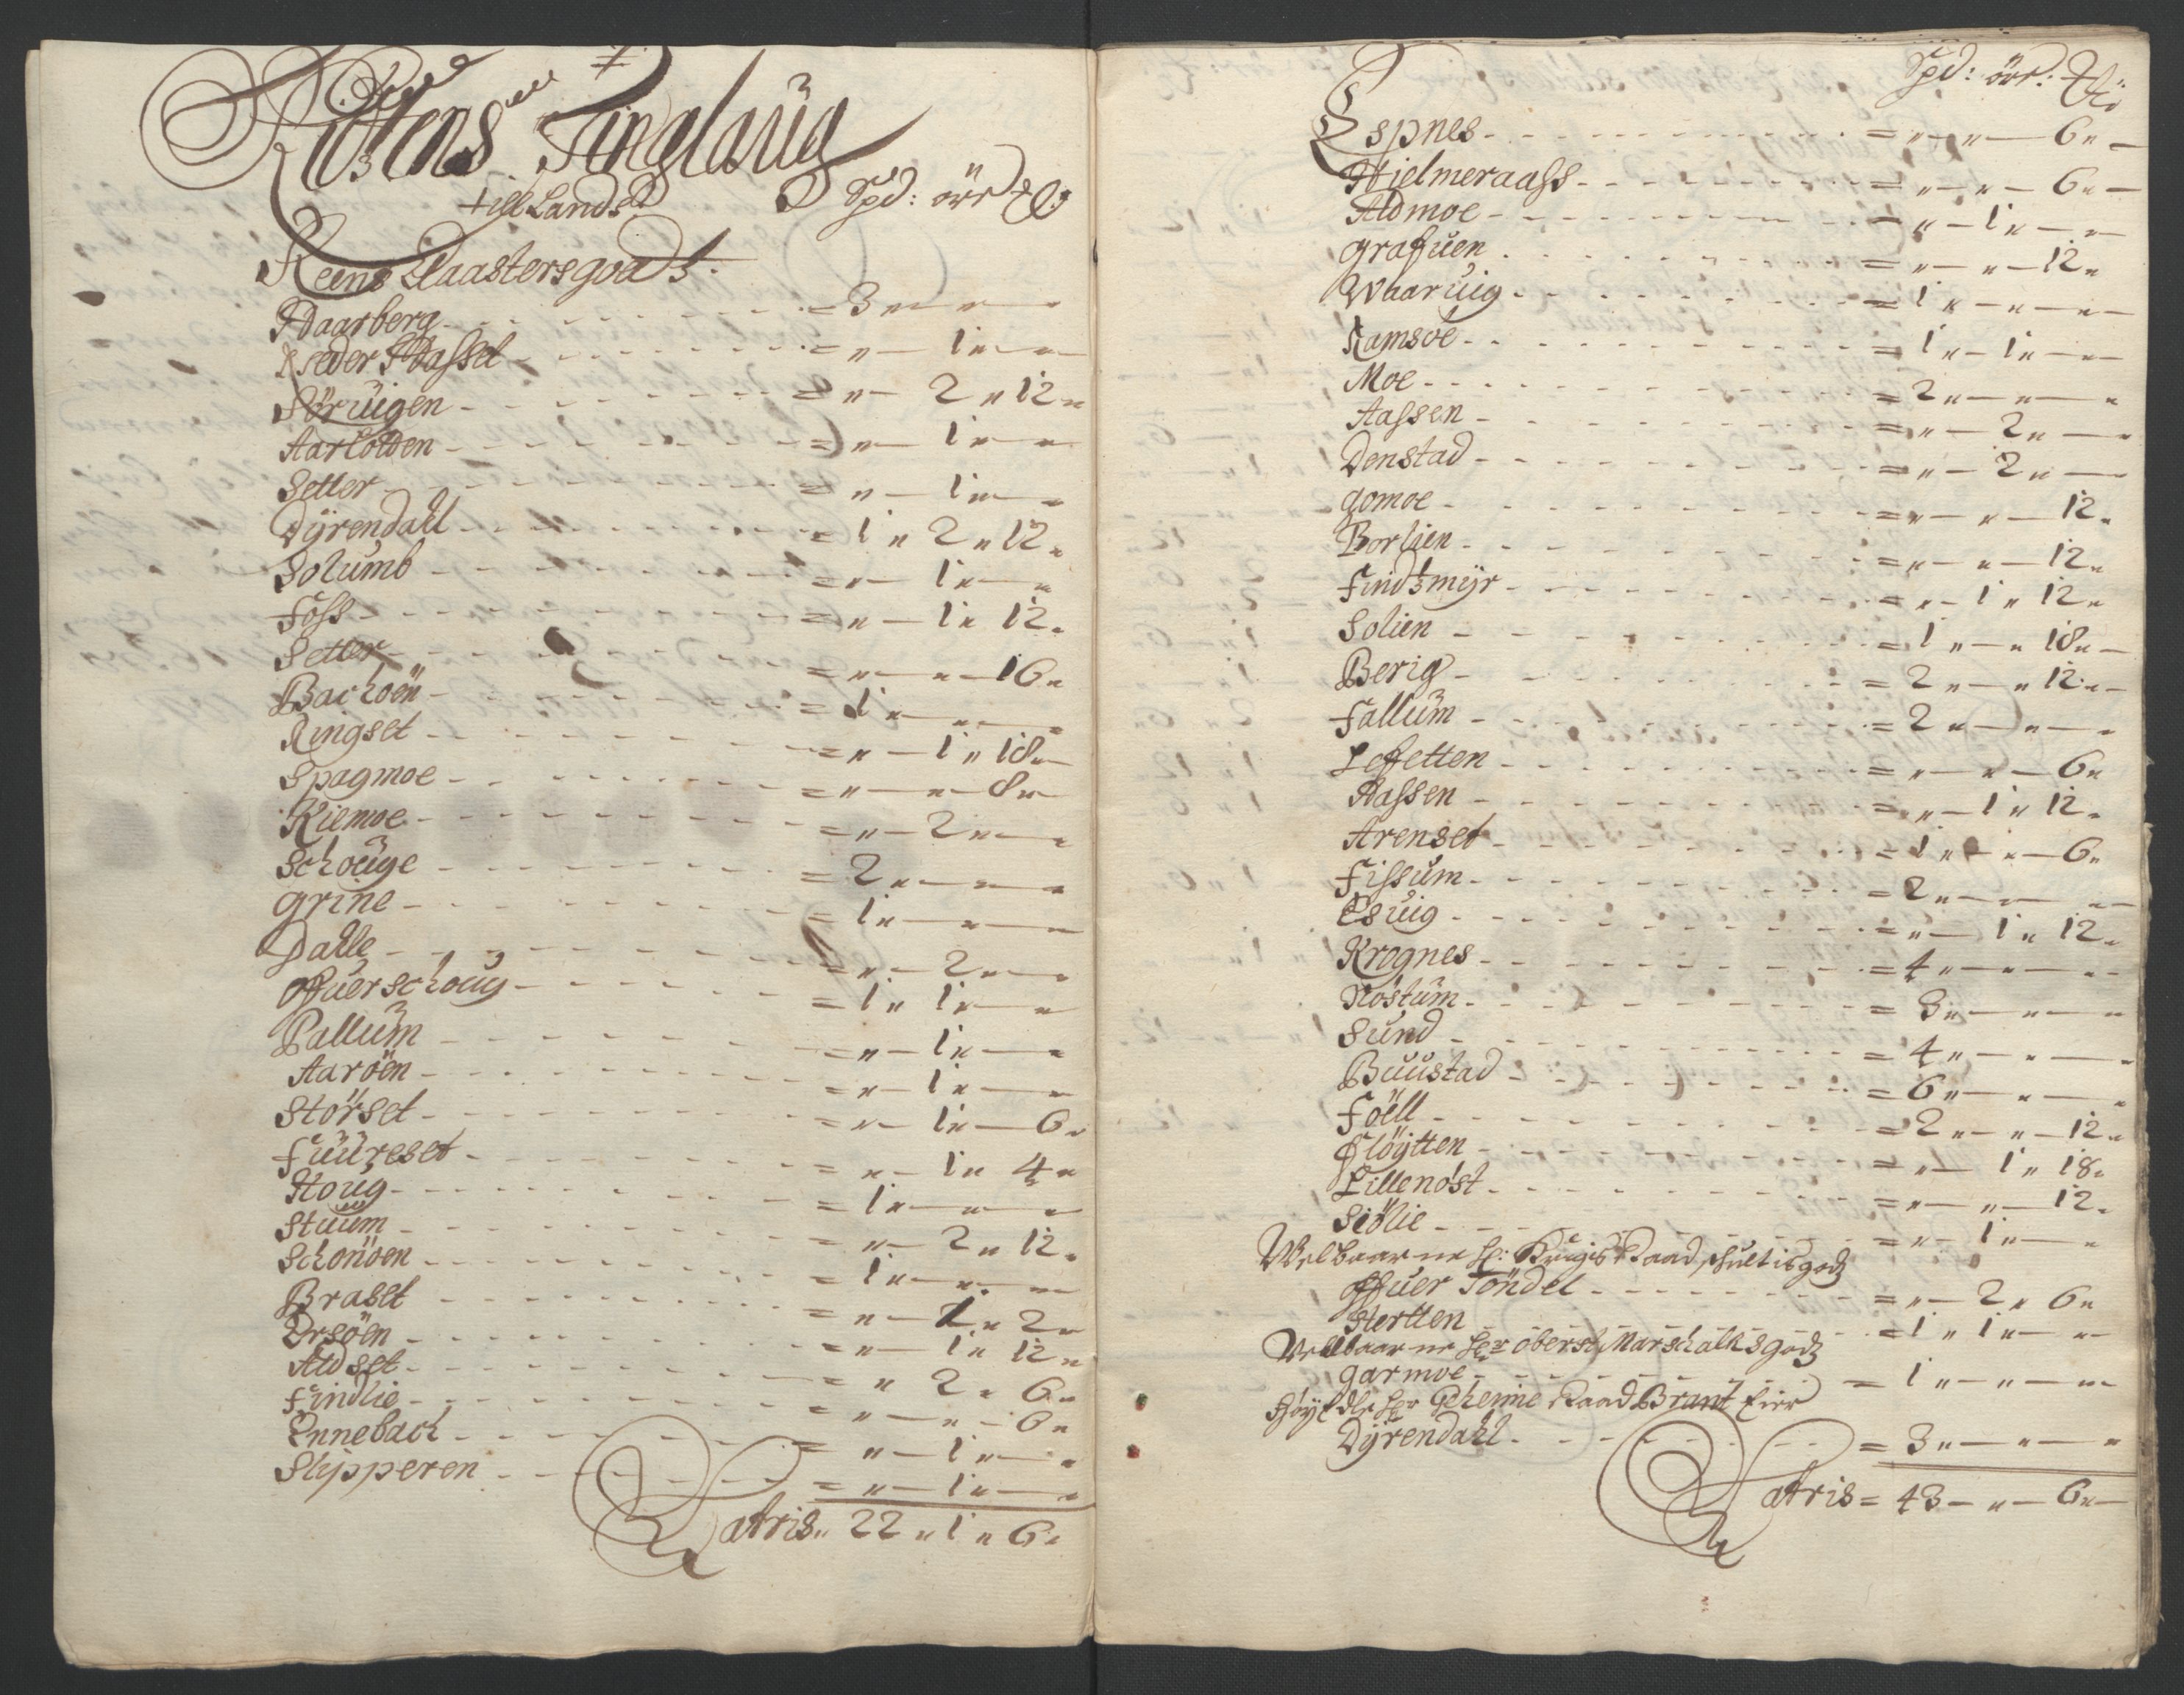 Rissens Tinglaug
till Lands
Spd: örr
Reens Klaastersgoeds.
Haarberg - - - = 3 " — " — "
Neder Hassel - - - = " — 1 " — "
Sörvigen - - - = " — 2 " 12 "
Aarlotten - - - = " — 1 " — "
Setter - - - = " — 1 " — "
Dÿrendahl - - - = 1 " 2 " 12 "
Solumb - - - = " — 1 " — "
Foss - - - = " — 1 " 12 "
Setter - - - = " — " — 16 "
Bachöen - - - = 1 " — " — "
Ringset - - - = " — 1 " 18 "
Spagmoe - - - = " — " — 8 "
Kiemoe - - - = " — 2 " — "
Schouge - - - = 2 " — " — "
Grine - - - = 1 " — " — "
Dahle - - - = " — 2 " — "
Offuerschoug - - - = 1 " 1 " — "
Pallum - - - = " — 1 " — "
Aaröen - - - = " — 1 " — "
Störset - - - = " — 1 " — 6 "
Fuureset - - - = " — 1 " 4 "
Houg - - - = 1 " — " — "
Stuum - - - = " — 2 " 12 "
Schonöen - - - = 1 " — " — "
Braset - - - = " — 2 " 2 "
Orsöen - - - = " — 1 " 12 "
Aldset - - - = " 2 " 6 "
Findlie - - - = " — " — 6 "
Ennebach - - - = " — 1 " — "
Slipperen - - - = " — 1 " — "
Latris " 22 " 1 " 6 "
Spd: örr:
Espnes - - - = " — " — 6 " —
Hielmeraass - - - = " — " — 6 " —
Aldmoe - - - = " — 1 " — "
Grafuen - - - = " — " — 12 "
Waarvig - - - = 1 " — " — "
Ramsoe - - - = 1 " — 1 " — "
Moe - - - = 2 " — " — "
Aassen - - - = " — 2 " — "
Denstad - - - = " — 2 " —
Gomoe - - - = " — " — 12 "
Borlien - - - = " — " — 12 "
Findsmÿr - - - = " — 1 " 12 "
Solien - - - = 1 " — " 18 " —
Berig - - - = 2 " — " 12 " —
Fallum - - - = 2 " — " — "
Lefetten - - - = " — " — 6 "
Hassen - - - = " — 1 " 12 "
Arenset - - - = 1 " — " — 6 "
Fissum - - - = 2 " — " — "
Esvig - - - = " — 1 " 12 "
Krognes - - - = 4 " — " — "
Rostum - - - = 3 " — " — "
Sund - - - = 4 " — " — "
Buustad - - - = 6 " — " — "
Föell - - - = 2 " — " — 12 "
Flöÿtten - - - = " — 1 " 18 "
Lillenöst - - - = " — " — 12 "
Siölie - - - = " — 1 " — "
Welbaarne Hr: Krigis Raad Schultis godz
Offuer Töndel - - - = " — 2 " 6 "
Stertten - - - = 1 " 1 " — "
Welbaarne Hr Oberst Marschalks godz
Garmoe - - - = 1 " — " — "
Höÿedle Hr Geheime Raad Brant Eier
Dÿrendahl - - - = 3 " — " — "
Latris = 43 — " — 6 " —